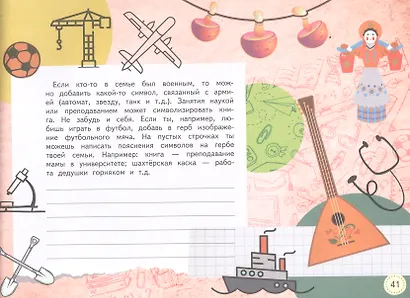 Если кто-то в семье был военным, то мож-
но добавить какой-то символ, связанный с арми-
ей (автомат, звезду, танк и т.д.). Занятия наукой
или преподаванием может символизировать кни-
га. Не забудь и себя. Если ты, например, лю-
бишь играть в футбол, добавь в герб изображе-
ние футбольного мяча. На пустых строчках ты
можешь написать пояснения символов на гербе
твоей семьи. Например: книга — преподавание
мамы в университете; шахтёрская каска — рабо-
та дедушки горняком и т.д.
41